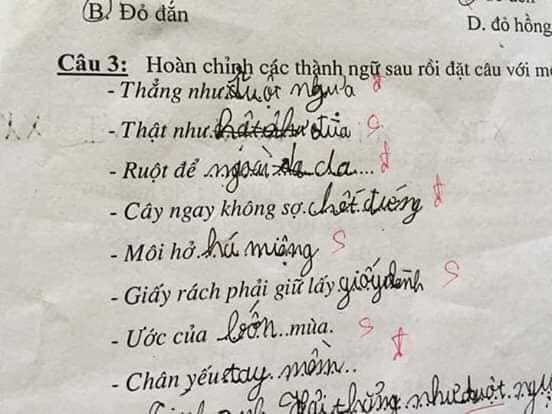 B. Đỏ đắn
D. đỏ hồng
Câu 3: Hoàn chỉnh các thành ngữ sau rồi đặt câu với
- Thẳng như ruột ngựa đ
- Thật như đũa s
- Ruột để ngoài da.... đ
- Cây ngay không sợ chết đứng đ
- Môi hở há miệng s
- Giấy rách phải giữ lấy giấy dính s
- Ước của bốn..mùa. s
- Chân yếu tay mềm.. đ
thẳng như ruột